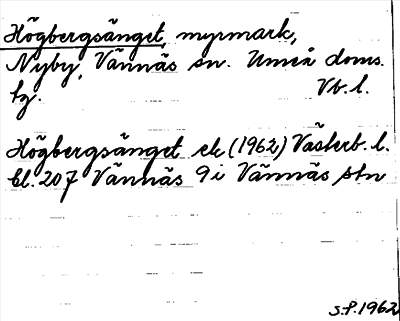 Högbergsänget, myrmark,
Nyby, Vännäs sn. Umeå doms.
tg. Vb. l.
Högbergsänget ek (1962) Västerb. l.
bl. 207 Vännäs 9i Vännäs stn
S.P. 1962